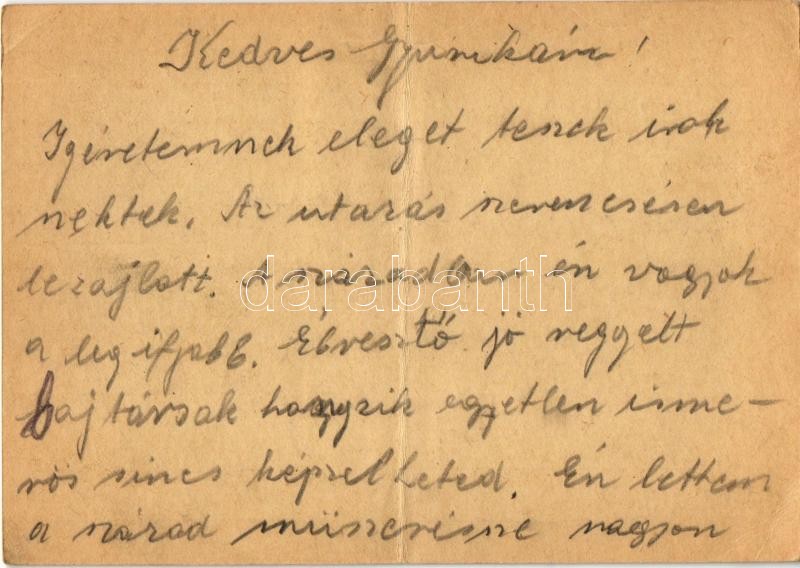 Kedves Gyurikám!
Igéretemnek eleget teszek irok
nektek. Az utazás szerencsésen
lezajlott. A században én vagyok
a legifjabb. Ébresztő jó reggelt
bajtársak hangzik egyetlen isme-
rös sincs képzelheted. Én lettem
a század müszerésze nagyon
darabanth